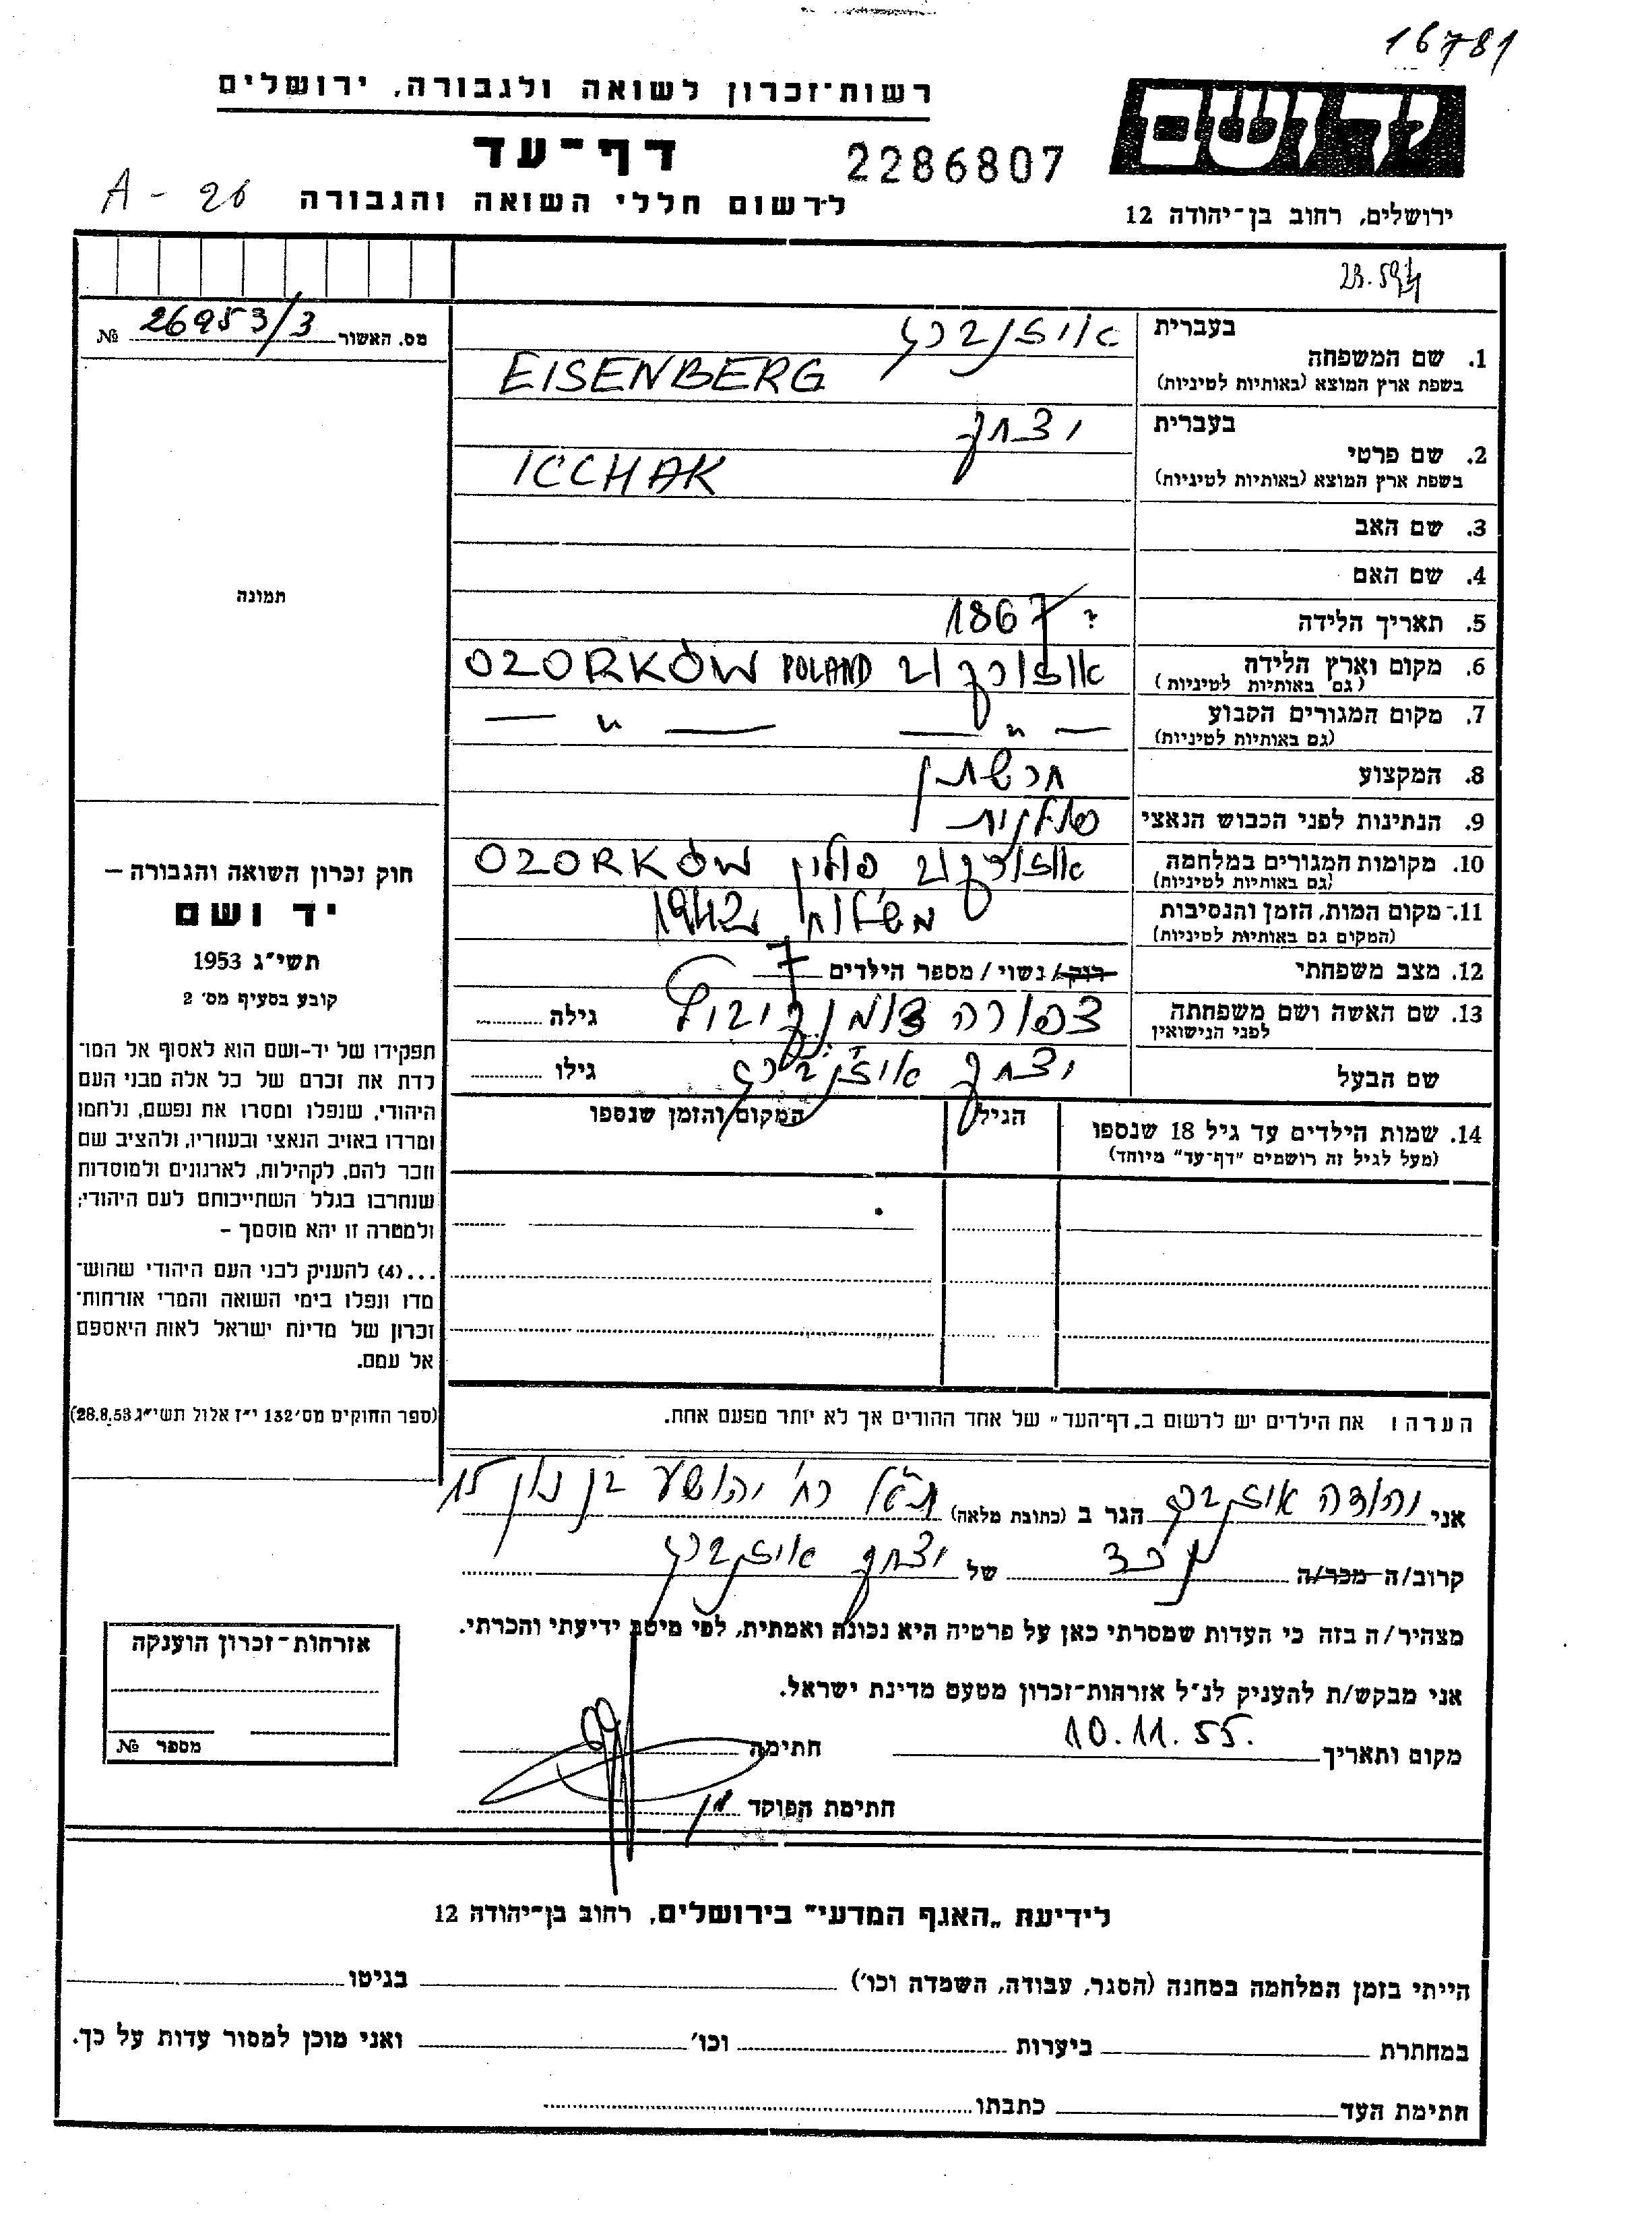 16781
רשות־זכרון לשואה ולגבורה, ירושלים
יד ושם
דף־עד
2286807
A - 26
לרשום חללי השואה והגבורה
ירושלים, רחוב בן־יהודה 12
מס. האשור 26953/3 №
בעברית אייזנברג
1. שם המשפחה
בשפת ארץ המוצא (באותיות לטיניות) EISENBERG
בעברית יצחק
2. שם פרטי
בשפת ארץ המוצא (באותיות לטיניות) ICCHAK
3. שם האב
4. שם האם
5. תאריך הלידה ? 1867
6. מקום וארץ הלידה אוזורקוב OZORKÓW POLAND
(גם באותיות לטיניות)
7. מקום המגורים הקבוע — " — — " —
(גם באותיות לטיניות)
8. המקצוע חרשתן
9. הנתינות לפני הכבוש הנאצי פולנית
10. מקומות המגורים במלחמה אוזורקוב פולין OZORKÓW
(גם באותיות לטיניות)
11. מקום המות, הזמן והנסיבות משלוח 1942
(המקום גם באותיות לטיניות)
12. מצב משפחתי רוק/נשוי/מספר הילדים 7
13. שם האשה ושם משפחתה צפורה גילה
לפני הנישואין
שם הבעל יצחק אייזנברג גילו
14. שמות הילדים עד גיל 18 שנספו הגיל המקום והזמן שנספו
(מעל לגיל זה רושמים "דף־עד" מיוחד)
תמונה
חוק זכרון השואה והגבורה –
יד ושם
תשי"ג 1953
קובע בסעיף מס׳ 2
תפקידו של יד-ושם הוא לאסוף אל המו־
לדת את זכרם של כל אלה מבני העם
היהודי, שנפלו ומסרו את נפשם, נלחמו
ומרדו באויב הנאצי ובעוזריו, ולהציב שם
וזכר להם, לקהילות, לארגונים ולמוסדות
שנחרבו בגלל השתייכותם לעם היהודי;
ולמטרה זו יהא מוסמך –
...(4) להעניק לבני העם היהודי שהוש־
מדו ונפלו בימי השואה והמרי אזרחות־
זכרון של מדינת ישראל לאות היאספם
אל עמם.
(ספר החוקים מס׳ 132 י"ז אלול תשי"ג 28.8.53)
הערה: את הילדים יש לרשום ב„דף־העד" של אחד ההורים אך לא יותר מפעם אחת.
אני יהודה אייזנברג הגר ב (כתובת מלאה) רח׳ יהושע בן נון 15
קרוב/ה מכר/ה נכד של יצחק אייזנברג
מצהיר/ה בזה כי העדות שמסרתי כאן על פרטיה היא נכונה ואמתית, לפי מיטב ידיעתי והכרתי.
אני מבקש/ת להעניק לנ"ל אזרחות־זכרון מטעם מדינת ישראל.
מקום ותאריך 10.11.55. חתימה
חתימת הפוקד
אזרחות־זכרון הוענקה
מספר №
לידיעת „האגף המדעי" בירושלים, רחוב בן־יהודה 12
הייתי בזמן המלחמה במחנה (הסגר, עבודה, השמדה וכו׳) בגיטו
במחתרת ביערות וכו׳ ואני מוכן למסור עדות על כך.
חתימת העד כתבתו